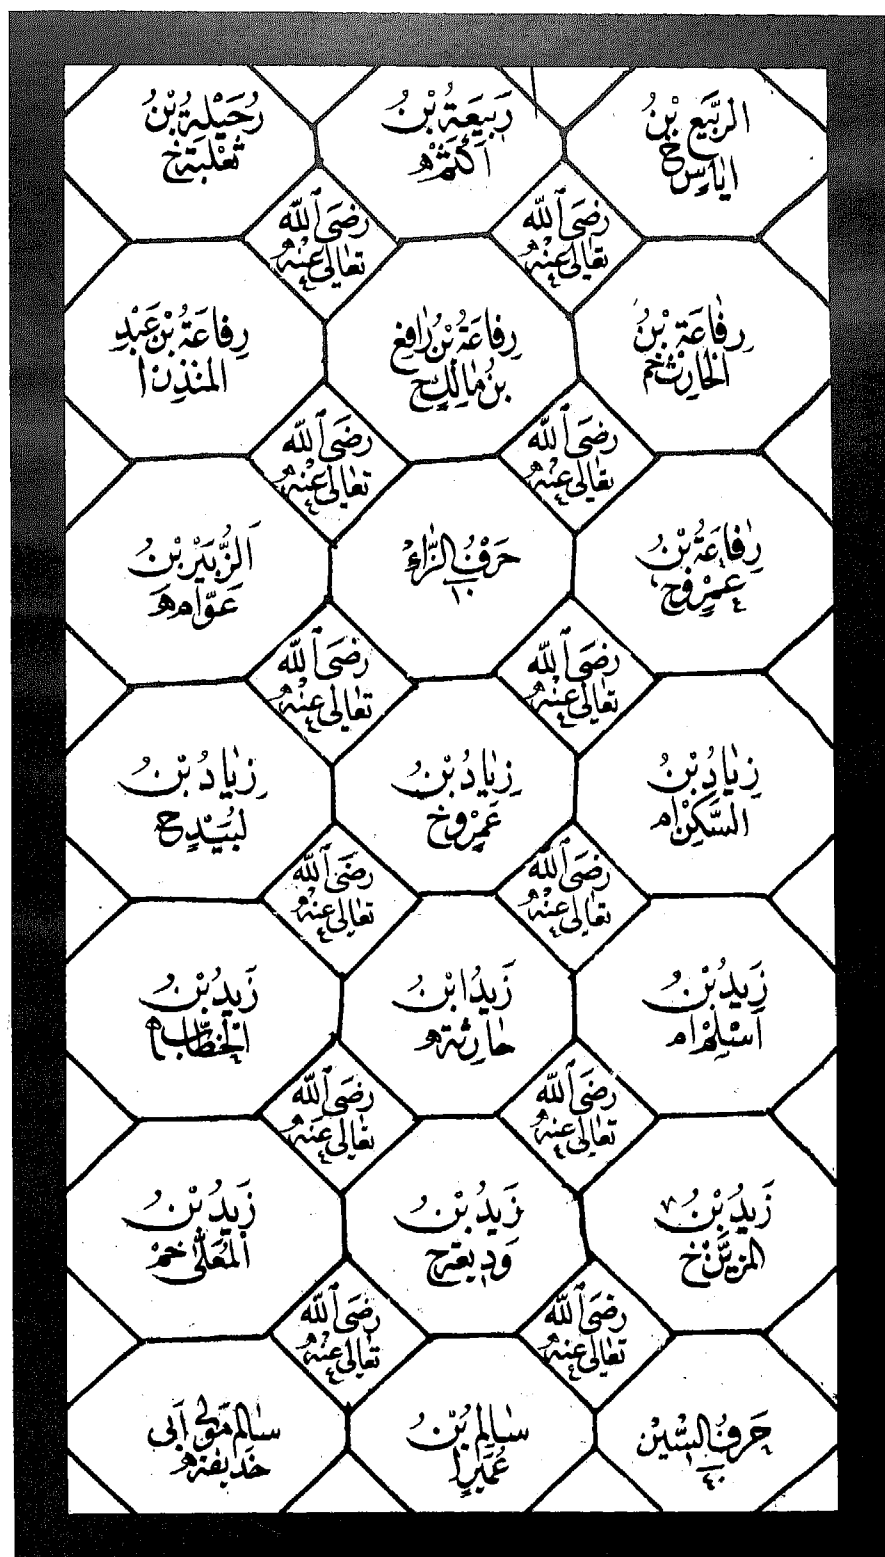 الرَّبِيع بْنُ
اِيَاسٍ خ
رَبِيعَةُ بْنُ
اَكْثَمْ ه
رُحَيْلَةُ بْنُ
ثَعْلَبَة خ
رَضِىَ ٱللّٰه
تعَالىٰ عَنْهُ
رَضِىَ ٱللّٰه
تعَالىٰ عَنْهُ
رِفَاعَة بْنُ
الْحَارِث خم
رِفاعَةُ بْنُ رَافِع
بنُ مَالِكٍ خ
رِفاعَةُ بْنُ عَبْدِ
المنذِرْ ا
رَضِىَ ٱللّٰه
تعَالىٰ عَنْهُ
رَضِىَ ٱللّٰه
تعَالىٰ عَنْهُ
رِفَاعَةُ بْنُ
عَمْرٍو خ
حَرْفُ الزَّاءِ
١٠
اَلزُّبَيْر بْنُ
عَوَّام ه
رَضِىَ ٱللّٰه
تعَالىٰ عَنْهُ
رَضِىَ ٱللّٰه
تعَالىٰ عَنْهُ
زِيَادُ بْنُ
السَّكَنْ ام
زِيَادُ بْنُ
عَمْرٍو خ
زِيَادُ بْنُ
لَبِيدٍ خ
رَضِىَ ٱللّٰه
تعَالىٰ عَنْهُ
رَضِىَ ٱللّٰه
تعَالىٰ عَنْهُ
زَيدُ بْنُ
اَسْلَمْ ام
زَيدُ ابْنُ
حَارِثَة ه
زَيدُ بْنُ
الْخَطَّاب ه
رَضِىَ ٱللّٰه
تعَالىٰ عَنْهُ
رَضِىَ ٱللّٰه
تعَالىٰ عَنْهُ
زَيدُ بْنُ
المزَيَّن خ
زَيدُ بْنُ
وَدِيعَة خ
زَيدُ بْنُ
الْمُعَلّىٰ خم
رَضِىَ ٱللّٰه
تعَالىٰ عَنْهُ
رَضِىَ ٱللّٰه
تعَالىٰ عَنْهُ
حَرفُ السِّين
٤٠
سَالِم بْنُ
عُمَيْرٍ ا
سَالِم مَوْلىٰ اَبى
حُذَيفَة ه